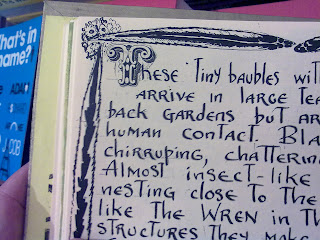 What's in
name?
These Tiny baubles wit
arrive in large tea
back gardens but ar
human contact. Bla
chirruping, chatterin
Almost insect-like
nesting close to the
like the Wren in th
structures they make